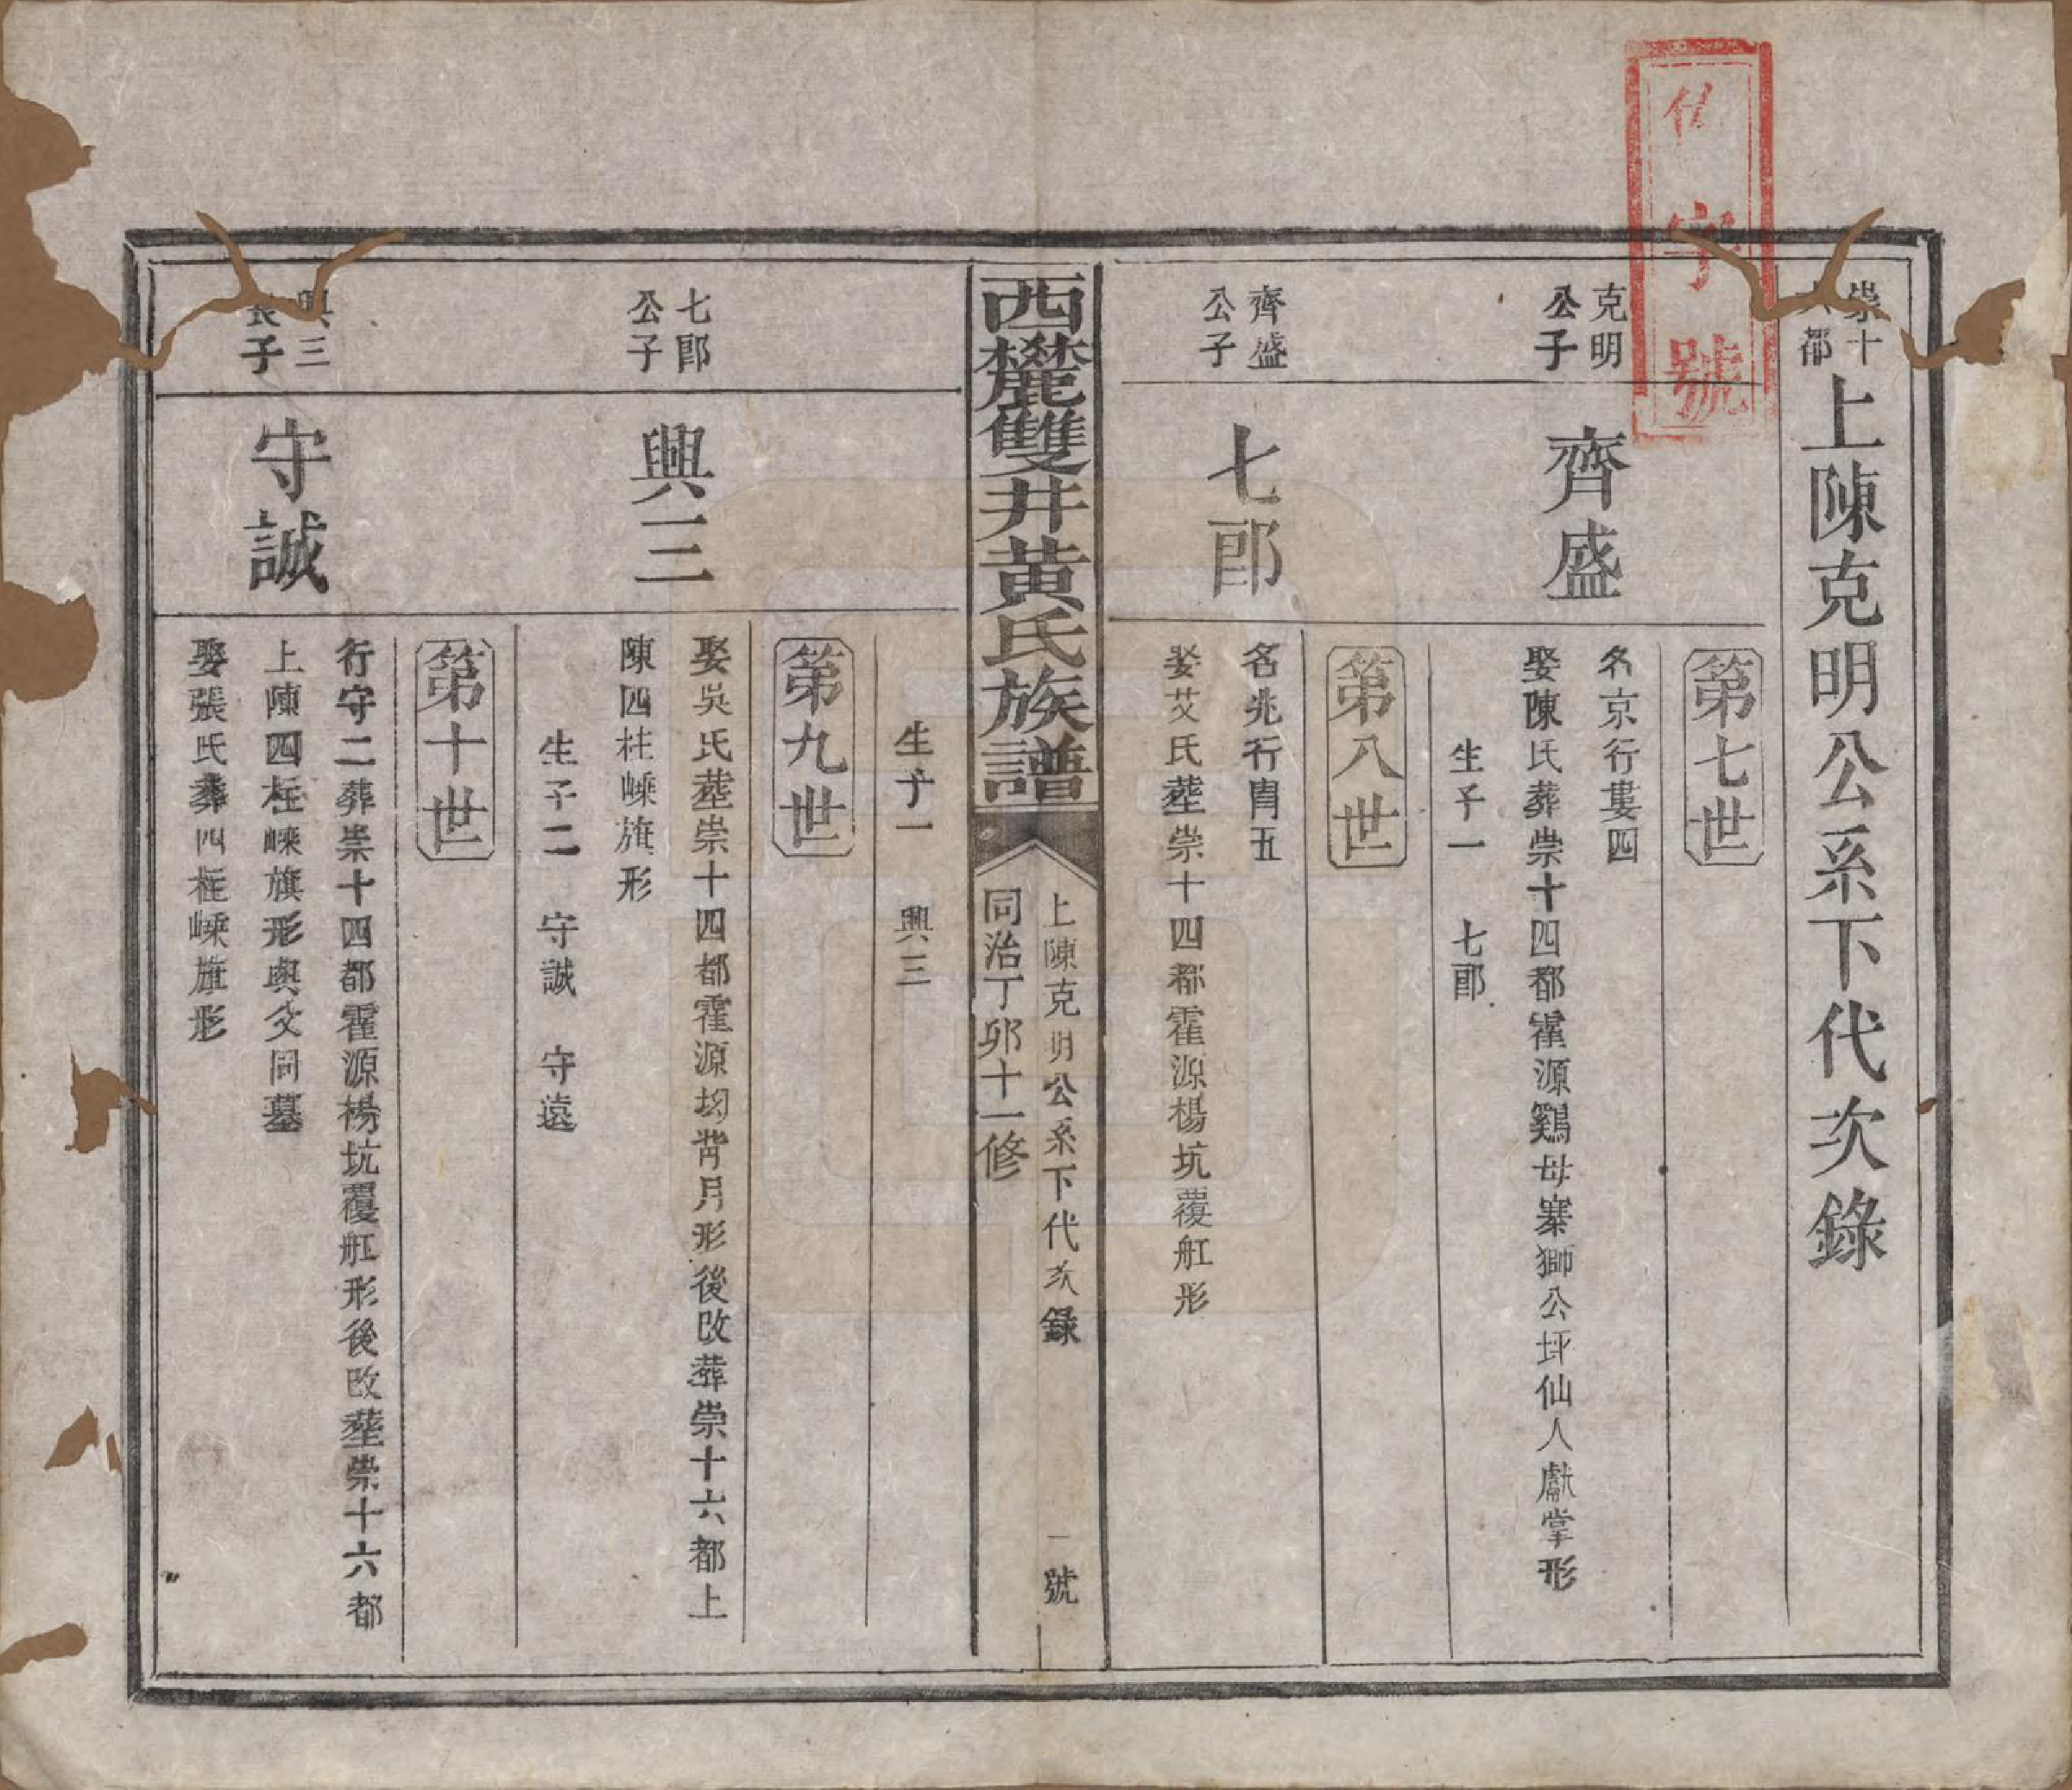 字號
崇十
六都
上陳克明公系下代次錄
第七世
克明
公子
齊盛
名京行婁四
娶陳氏葬崇十四都霍源鷄母寨獅公坪仙人獻掌形
生子一 七郎
第八世
齊盛
公子
七郎
名兆行胄五
娶艾氏葬崇十四都霍源楊坑覆舡形
西麓雙井黃氏族譜
上陳克明公系下代次錄 一號
同治丁卯十一修
生子一 興三
第九世
七郎
公子
興三
娶吳氏葬崇十四都霍源坳背月形後改葬崇十六都上
陳四柱嵊旗形
生子二 守誠 守遠
第十世
興三
長子
守誠
行守二葬崇十四都霍源楊坑覆舡形後改葬崇十六都
上陳四柱嵊旗形與父同墓
娶張氏葬四柱嵊旗形